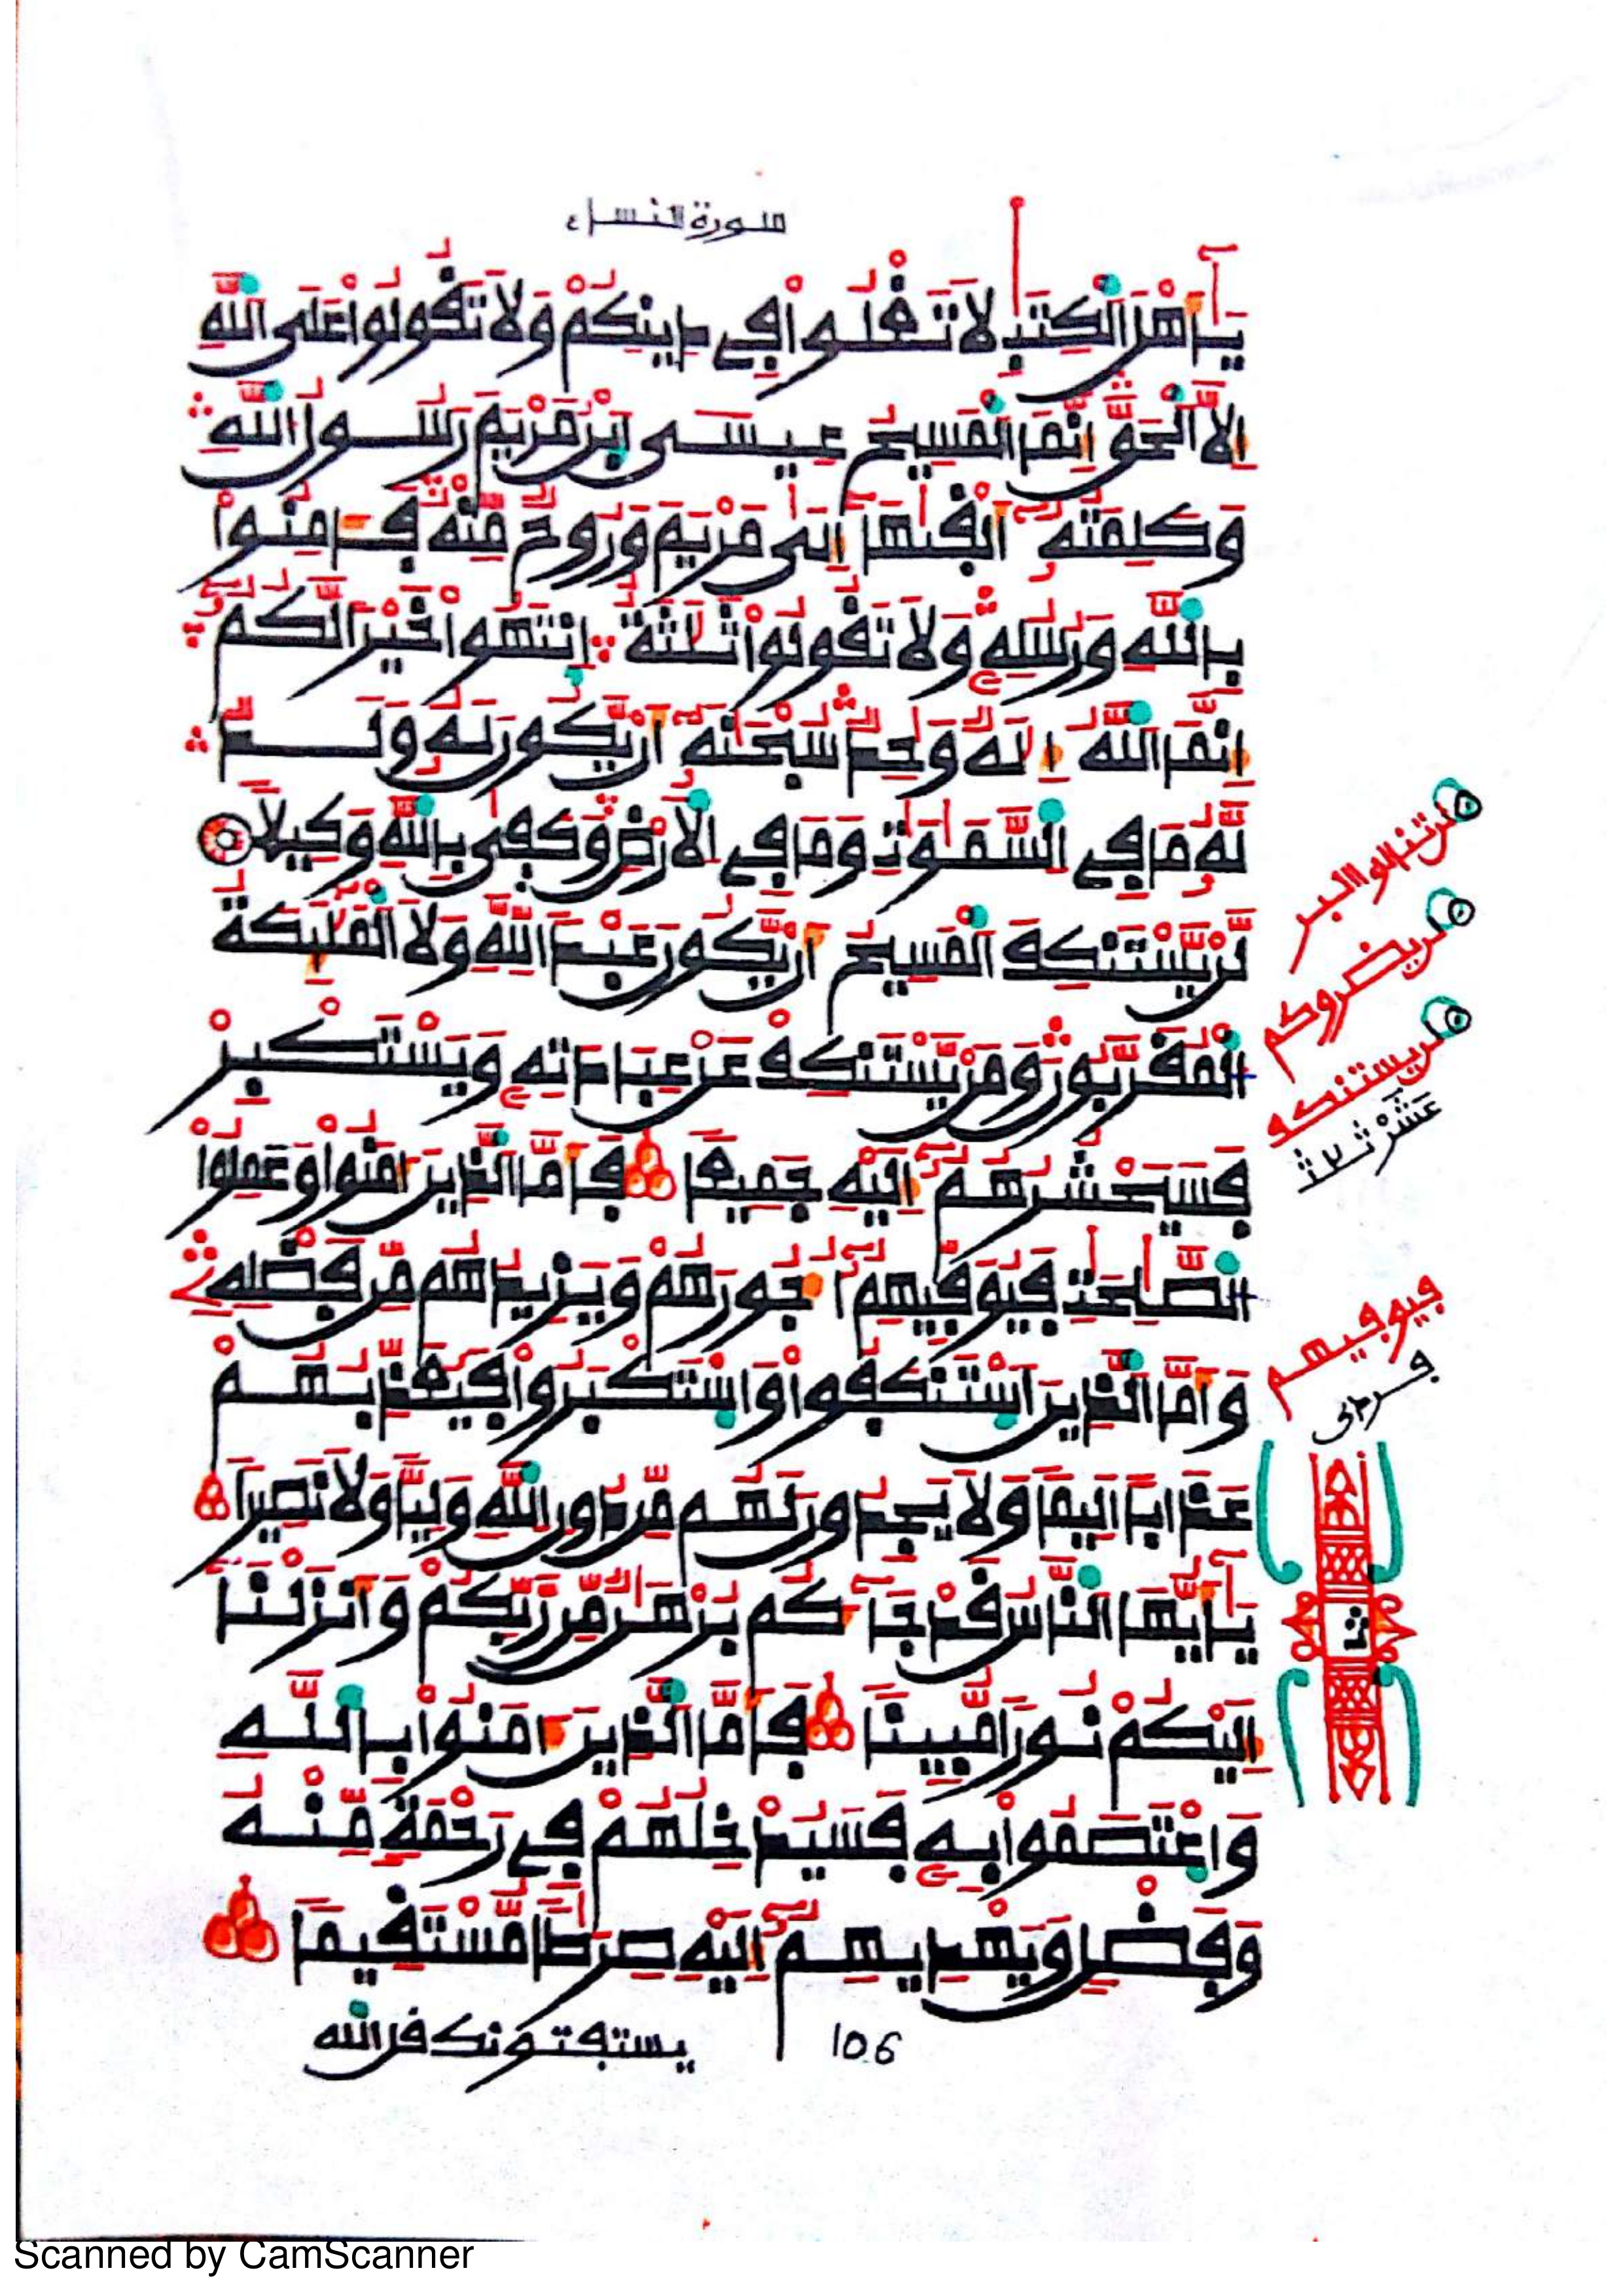 سورة النساء
يَٰٓأَهْلَ ٱلْكِتَٰبِ لَا تَغْلُوا۟ فِے دِينِكُمْ وَلَا تَقُولُوا۟ عَلَى ٱللَّهِ
إِلَّا ٱلْحَقَّ إِنَّمَا ٱلْمَسِيحُ عِيسَى ٱبْنُ مَرْيَمَ رَسُولُ ٱللَّهِ
وَكَلِمَتُهُۥٓ أَلْقَىٰهَآ إِلَىٰ مَرْيَمَ وَرُوحٌ مِّنْهُ فَـَٔامِنُوا۟
بِٱللَّهِ وَرُسُلِهِۦ وَلَا تَقُولُوا۟ ثَلَٰثَةٌ ٱنتَهُوا۟ خَيْرًا لَّكُمُۥٓ
إِنَّمَا ٱللَّهُ إِلَٰهٌ وَٰحِدٌ سُبْحَٰنَهُۥٓ أَنْ يَّكُونَ لَهُۥ وَلَدٌ
لَّهُۥ مَا فِے ٱلسَّمَٰوَٰتِ وَمَا فِے ٱلْأَرْضِ وَكَفَىٰ بِٱللَّهِ وَكِيلًا
لَّنْ يَّسْتَنكِفَ ٱلْمَسِيحُ أَنْ يَّكُونَ عَبْدًا لِّلَّهِ وَلَا ٱلْمَلَٰٓئِكَةُ
ٱلْمُقَرَّبُونَ وَمَنْ يَّسْتَنكِفْ عَنْ عِبَادَتِهِۦ وَيَسْتَكْبِرْ
فَسَيَحْشُرُهُمُۥٓ إِلَيْهِ جَمِيعًا فَأَمَّا ٱلَّذِينَ ءَامَنُوا۟ وَعَمِلُوا۟
ٱلصَّٰلِحَٰتِ فَيُوَفِّيهِمُۥٓ أُجُورَهُمْ وَيَزِيدُهُم مِّن فَضْلِهِۦ
وَأَمَّا ٱلَّذِينَ ٱسْتَنكَفُوا۟ وَٱسْتَكْبَرُوا۟ فَيُعَذِّبُهُمْ
عَذَابًا أَلِيمًا وَلَا يَجِدُونَ لَهُم مِّن دُونِ ٱللَّهِ وَلِيًّا وَلَا نَصِيرًا
يَٰٓأَيُّهَا ٱلنَّاسُ قَدْ جَآءَكُم بُرْهَٰنٌ مِّن رَّبِّكُمْ وَأَنزَلْنَآ
إِلَيْكُمْ نُورًا مُّبِينًا فَأَمَّا ٱلَّذِينَ ءَامَنُوا۟ بِٱللَّهِ
وَٱعْتَصَمُوا۟ بِهِۦ فَسَيُدْخِلُهُمْ فِے رَحْمَةٍ مِّنْهُ
وَفَضْلٍ وَيَهْدِيهِمُۥٓ إِلَيْهِ صِرَٰطًا مُّسْتَقِيمًا
يستفتونك قل الله
106
لن تنالوا البر
لن يضروكم
لن يستنكف
فيوفيهم
Scanned by CamScanner